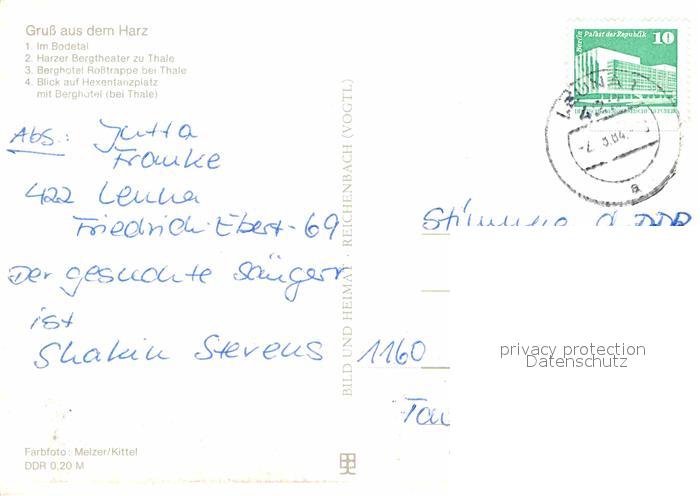 Gruß aus dem Harz
1. Im Bodetal
2. Harzer Bergtheater zu Thale
3. Berghotel Roßtrappe bei Thale
4. Blick auf Hexentanzplatz
mit Berghotel (bei Thale)
Abs.: Jutta
Franke
422 Leuna
Friedrich-Ebert-69
Der gesuchte Sänger
ist
Shakin Stevens
Farbfoto: Melzer/Kittel
DDR 0,20 M
BILD UND HEIMAT · REICHENBACH (VOGTL)
Berlin Palast der Republik 10
LEUNA 1
42
a
DDR
1160
privacy protection
Datenschutz